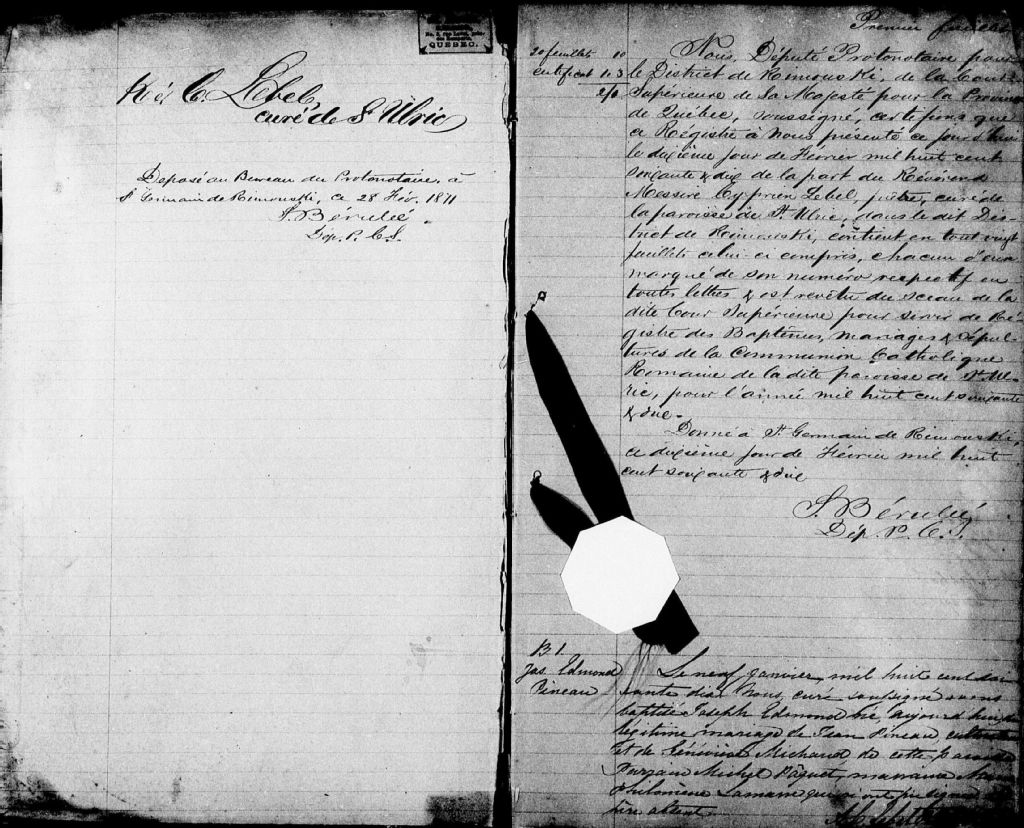 QUEBEC.
Rév C. Lebel,
curé de St Ulric
Deposé au Bureau du Protonotaire, à
St Germain de Rimouski, ce 28 Fév. 1871
Dép. P. C. S.
Premier feuillet
20 feuillets 10
certificat 1.3
2/1
Nous, Député Protonotaire pour
le District de Rimouski, de la Cour
Supérieure de Sa Majesté pour la Province
de Québec, soussigné, certifions que
ce Régistre à nous présenté ce jourd'hui
le dixième jour de Février mil huit cent
soixante & dix de la part du Révérend
Messire Cyprien Lebel, prêtre, curé de
la paroisse de St. Ulric, dans le dit Dis-
trict de Rimouski, contient en tout vingt
feuillets celui-ci compris, chacun d'eux
marqué de son numéro respectif en
toutes lettres & est revêtu du sceau de la
dite Cour Supérieure pour servir de Ré-
gistre des Baptêmes, mariages & sépul-
tures de la Communion Catholique
Romaine de la dite paroisse de St. Ul-
ric, pour l'année mil huit cent soixante
& dix.
Donné à St. Germain de Rimouski,
ce dixième jour de Février mil huit
cent soixante & dix
Dép. P. C. S.
B. 1.
Jos. Edmond
Pineau
Le neuf janvier mil huit cent soi
xante dix Nous, curé soussigné avons
baptisé Joseph Edmond né aujourd'hui du
légitime mariage de Jean Pineau cultivateur
et de Geneviève Michaud de cette paroisse
Parrain Michel Pâquet, marraine
Philomene Lamarre qui n'ont pu signer